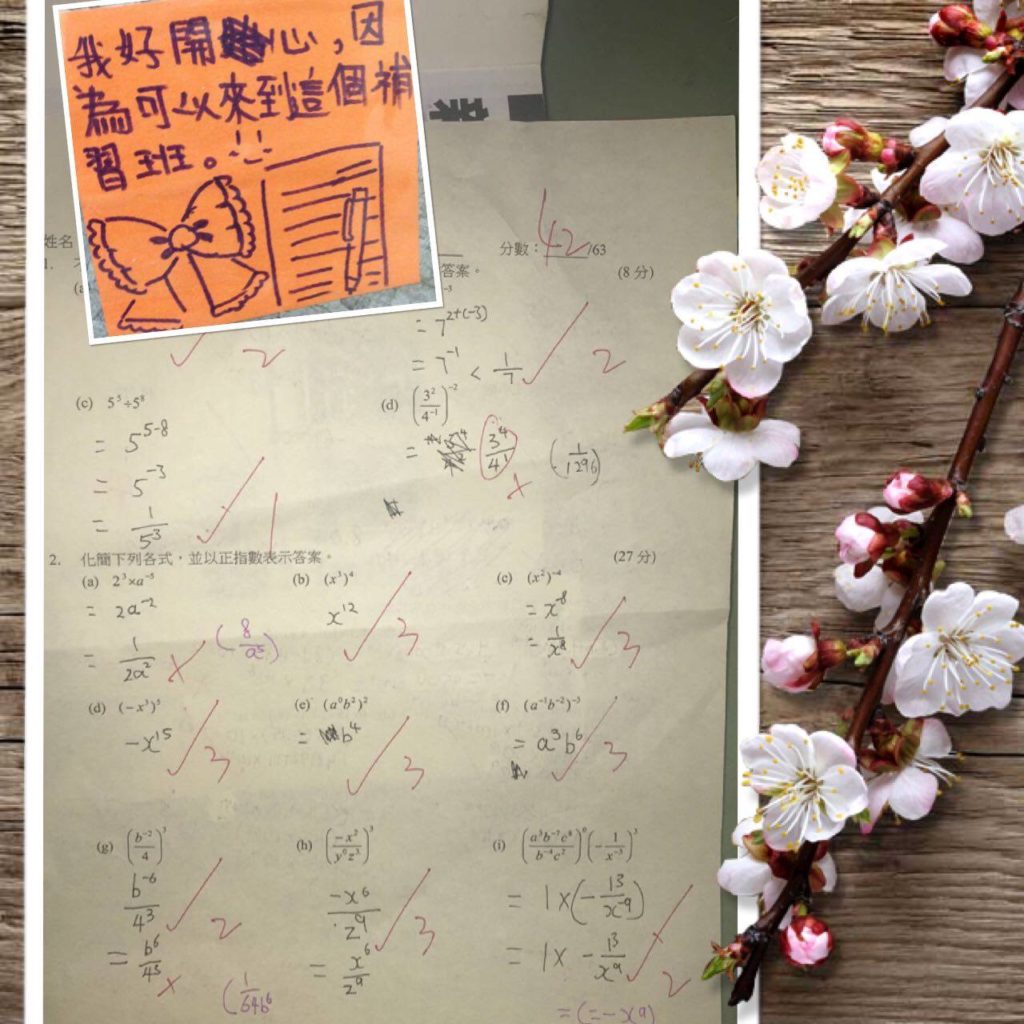 我好開心,因
為可以來到這個補
習班。
姓名
分數: 42 /63
1.
答案。
(8 分)
= 7^{2+(-3)}
= 7^{-1} < \frac{1}{7}
2
2
(c) 5^5÷5^8
(d) \left(\frac{3^2}{4^{-1}}\right)^{-2}
= 5^{5-8}
= \frac{3^4}{4^1} (\frac{1}{1296})
= 5^{-3}
= \frac{1}{5^3}
1
2. 化簡下列各式,並以正指數表示答案。 (27 分)
(a) 2^3×a^{-5} (b) (x^3)^4 (c) (x^2)^{-4}
= 2a^{-2} x^{12} 3 = x^{-8}
= \frac{1}{2a^2} (\frac{8}{a^5}) = \frac{1}{x^8} 3
(d) (-x^3)^5 (e) (a^0b^2)^2 (f) (a^{-1}b^{-2})^{-3}
-x^{15} 3 = b^4 3 = a^3b^6 3
(g) \left(\frac{b^{-2}}{4}\right)^3 (h) \left(\frac{-x^2}{y^0z^3}\right)^3 (i) \left(\frac{a^3b^{-7}c^8}{b^{-4}c^2}\right)^0\left(-\frac{1}{x^{-3}}\right)^3
\frac{b^{-6}}{4^3} 2 \frac{-x^6}{z^9} 3 = 1×(-\frac{13}{x^{-9}})
= \frac{b^6}{4^3} (\frac{1}{64b^6} = \frac{x^6}{z^9} = 1× -\frac{13}{x^9} 2